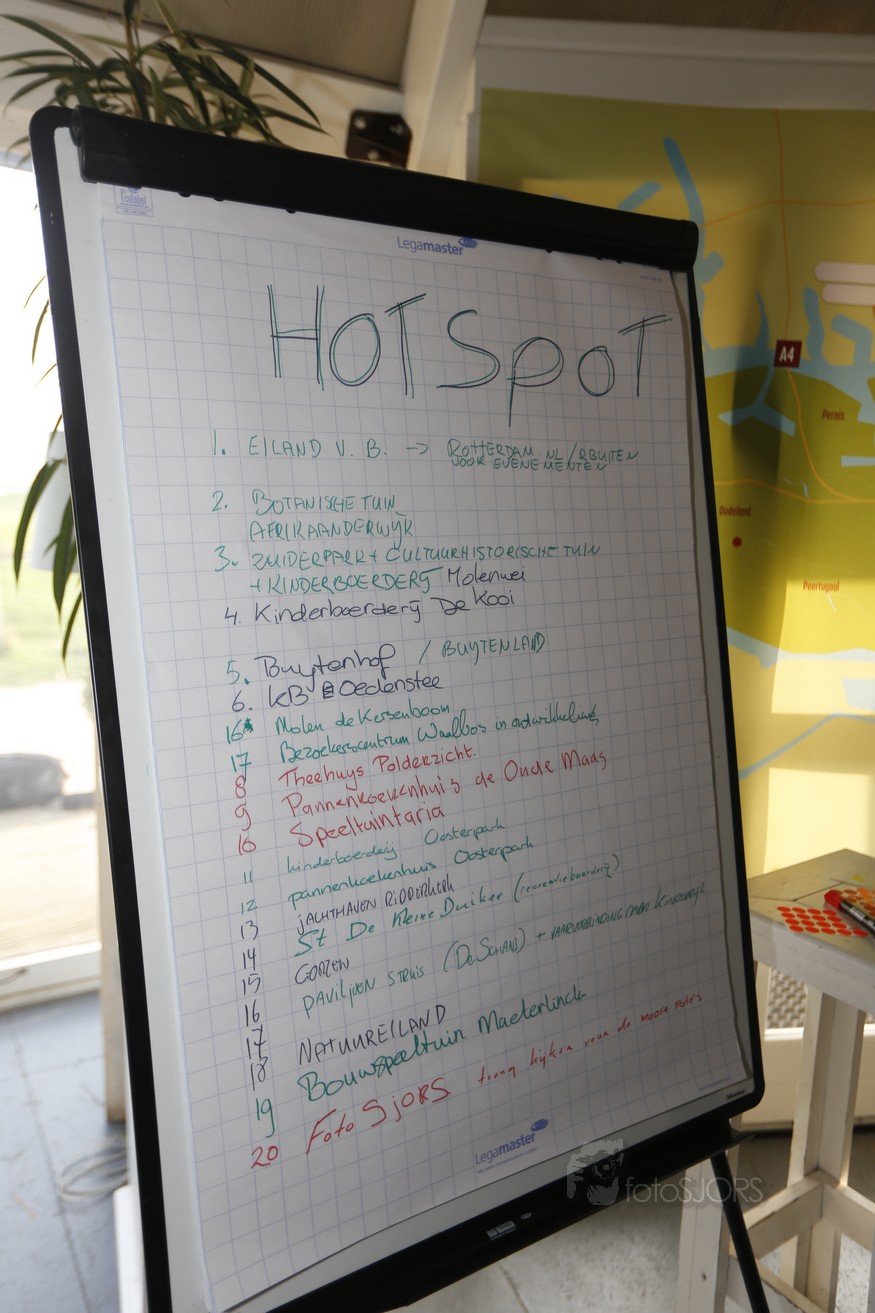 Ecolabel
Legamaster
HOTSPOT
1. EILAND V. B. -> ROTTERDAM.NL/RBUITEN
VOOR EVENEMENTEN
2. BOTANISCHE TUIN
AFRIKAANDERWIJK
3. ZUIDERPARK + CULTUURHISTORISCHE TUIN
+ KINDERBOERDERIJ Molenwei
4. Kinderboerderij De Kooi
5. Buytenhof / BUYTENLAND
6. KB Oedenstee
16 Molen de Kersenboom
17 Bezoekerscentrum Waalbos in ontwikkeling
8 Theehuys Polderzicht.
9 Pannenkoekenhuis de Oude Maas
10 Speeltuintaria
11 kinderboerderij Oosterpark
12 pannenkoekenhuis Oosterpark
13 JACHTHAVEN RIDDERKERK
14 St De Kleine Duiker (recreatieboerderij)
15 GORZEN
16 PAVILJOEN STRUIS (De Schans) + VAARVERBINDING naar Kinderdijk
17
18 NATUUREILAND
19 Bouwspeeltuin Maeterlinck
20 Foto SJORS kijken voor de mooie foto's
Legamaster
fotoSJORS
A4
Pernis
Poortugaal